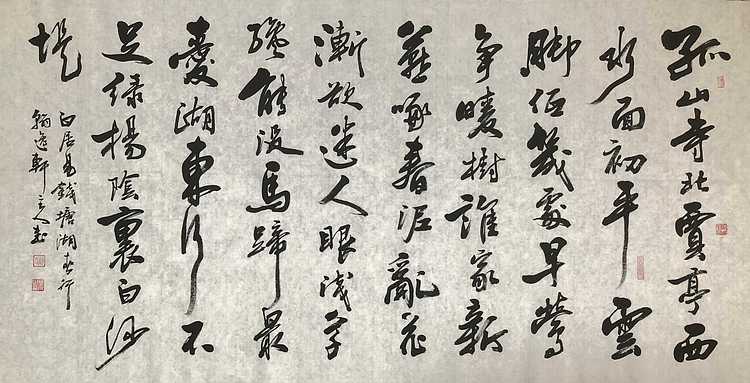 孤山寺北賈亭西
水面初平雲
脚低幾處早鶯
争暖樹誰家新
燕啄春泥亂花
漸欲迷人眼淺草
纔能没馬蹄最
愛湖東行不
足緑楊陰裏白沙
堤
白居易錢塘湖春行
翰逸軒主人書